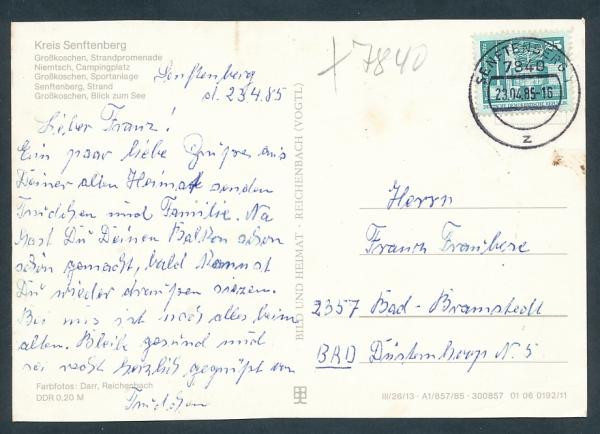 Kreis Senftenberg
Großkoschen, Strandpromenade
Niemtsch, Campingplatz
Großkoschen, Sportanlage
Senftenberg, Strand
Großkoschen, Blick zum See
Senftenberg
d. 23.4.85
Lieber Franz!
Ein paar liebe Grüße aus
Deiner alten Heimat senden
Trudchen und Familie. Na
hast Du Deinen Balkon schon
schön gemacht, bald kannst
Du wieder draußen sitzen.
Bei uns ist noch alles beim
alten. Bleibe gesund und
sei recht herzlich gegrüßt von
Trudchen
Farbfotos: Darr, Reichenbach
DDR 0,20 M
BILD UND HEIMAT · REICHENBACH (VOGTL)
7840
SENFTENBERG 1
7840
23.04.85-16
z
Herrn
Franz
2357 Bad-Bramstedt
BRD Düstern Hoop N. 5
III/26/13 · A1/857/85 · 300857 01 06 0192/11